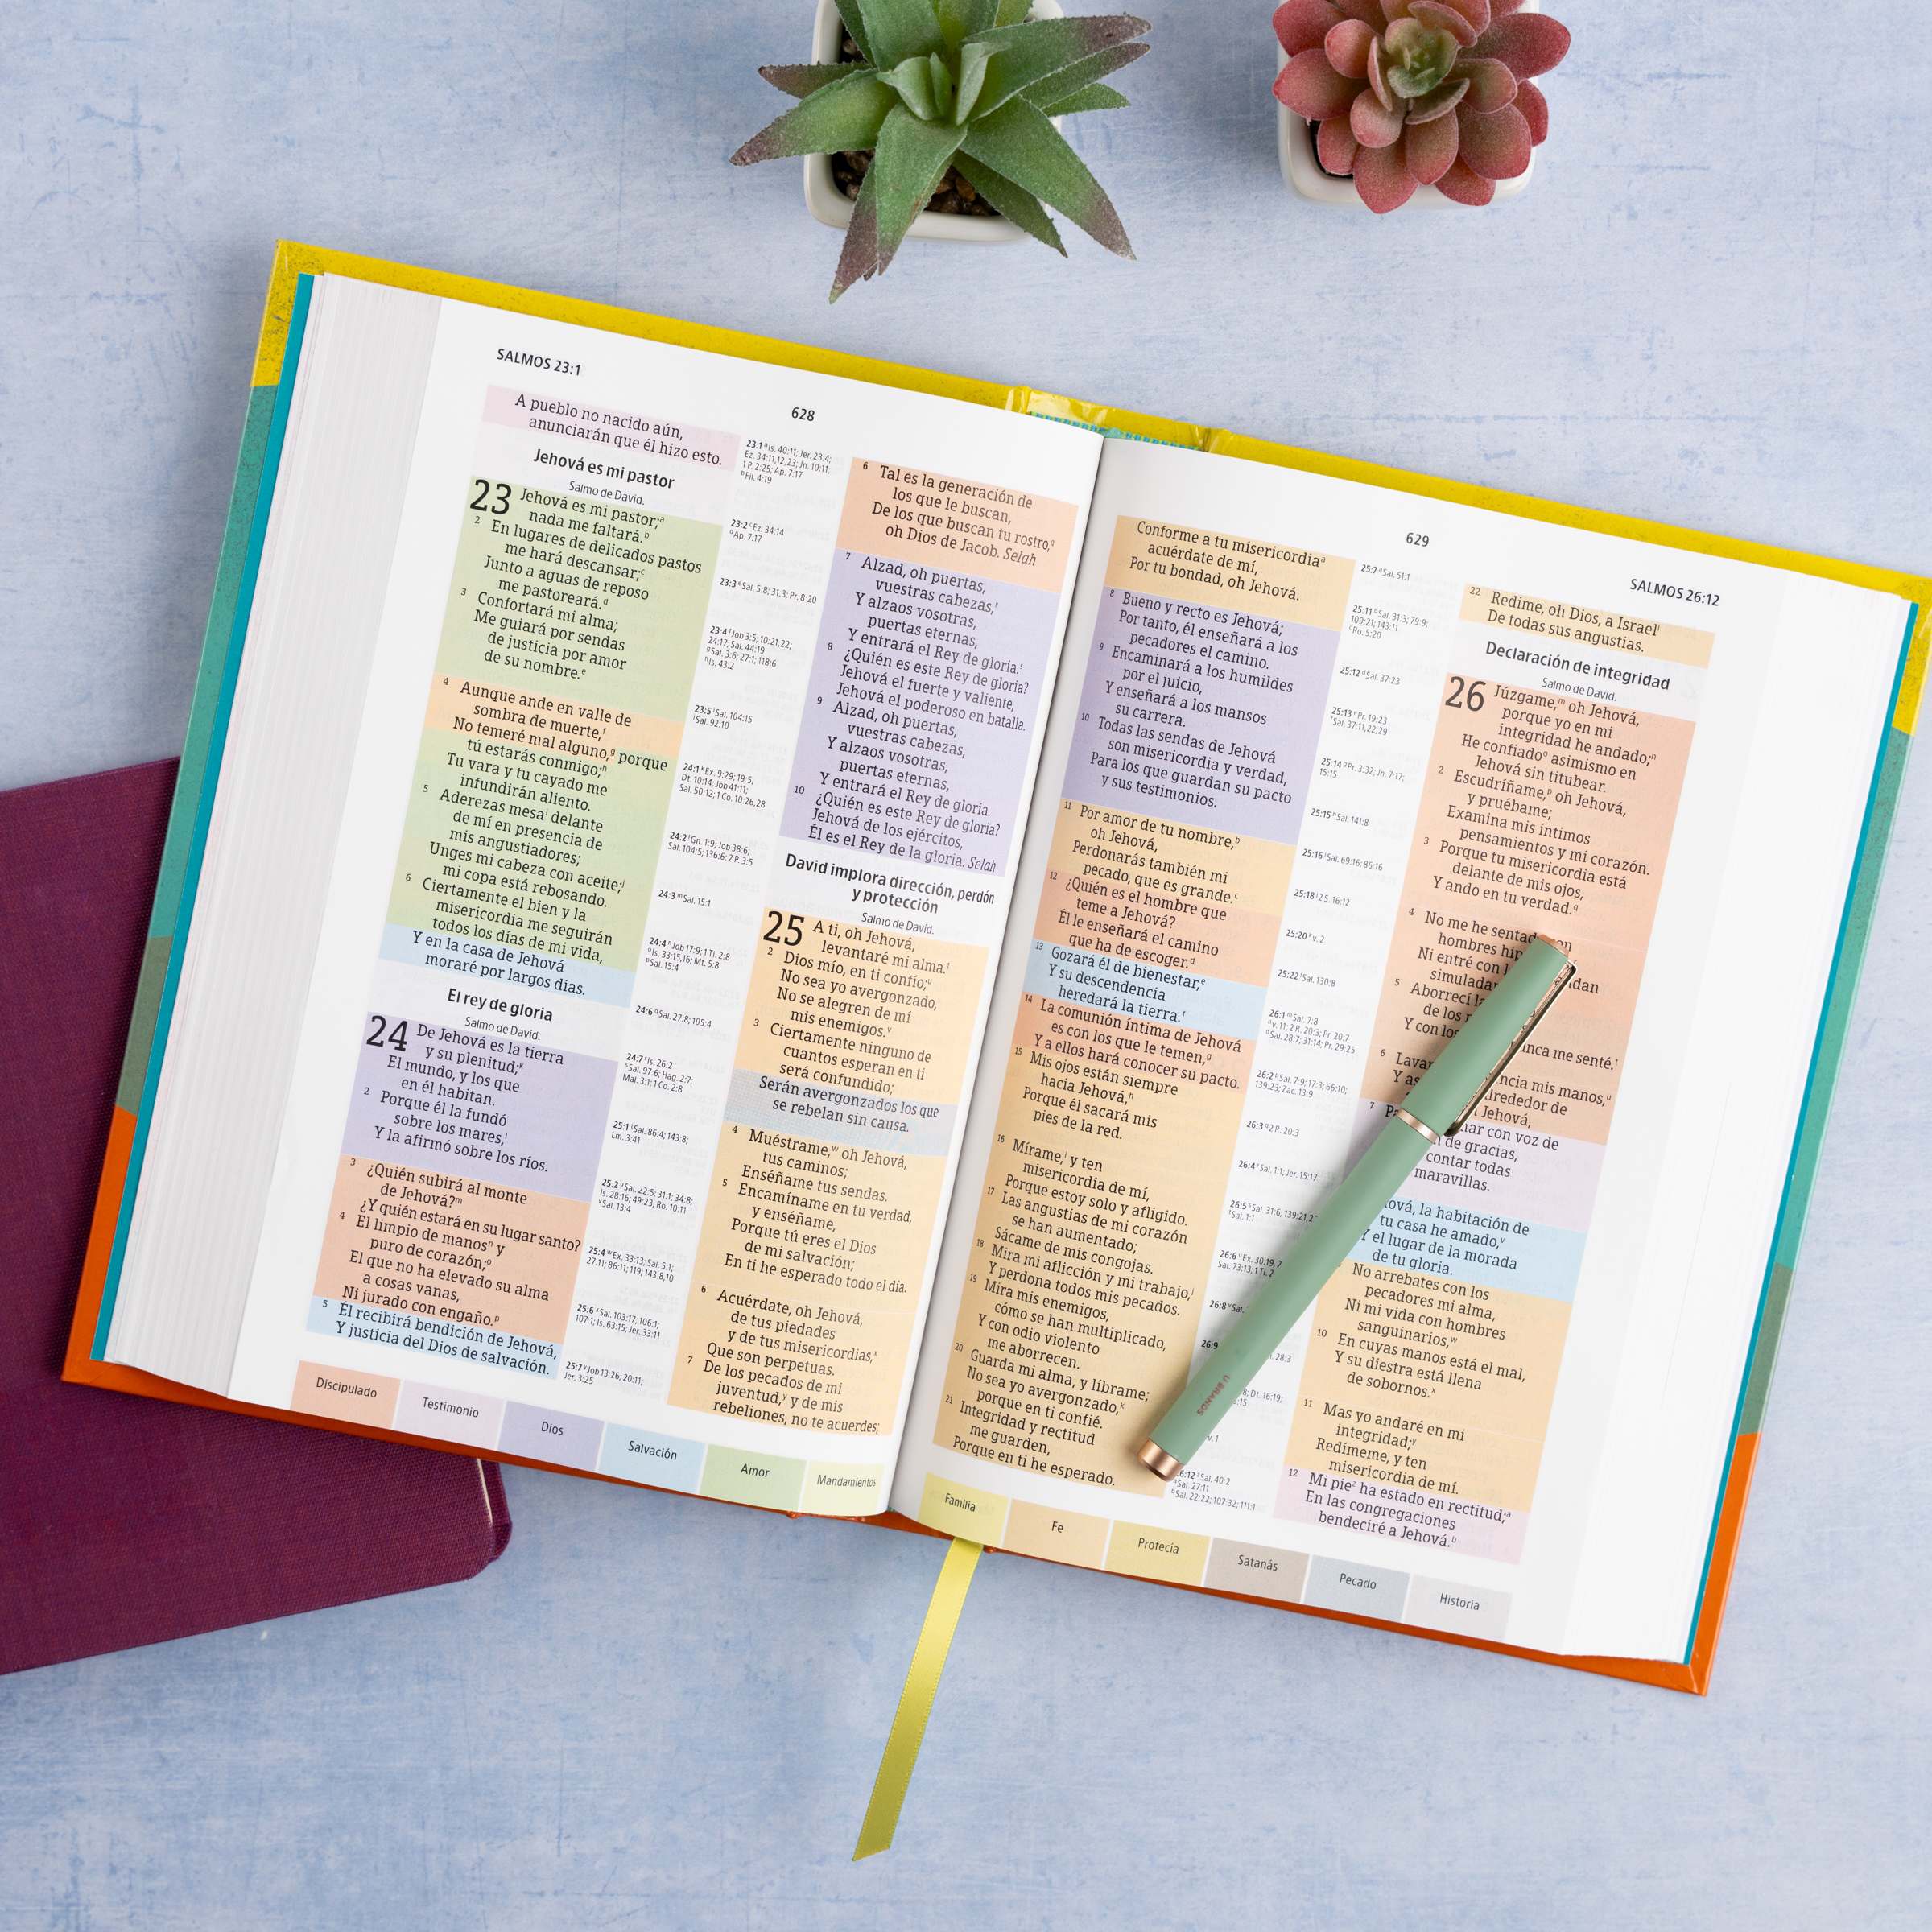 SALMOS 23:1
628
A pueblo no nacido aún,
anunciarán que él hizo esto.
Jehová es mi pastor
Salmo de David.
23 Jehová es mi pastor;a
nada me faltará.b
2 En lugares de delicados pastos
me hará descansar;c
Junto a aguas de reposo
me pastoreará.d
3 Confortará mi alma;
Me guiará por sendas
de justicia por amor
de su nombre.e
4 Aunque ande en valle de
sombra de muerte,f
No temeré mal alguno,g porque
tú estarás conmigo;h
Tu vara y tu cayado me
infundirán aliento.
5 Aderezas mesai delante
de mí en presencia de
mis angustiadores;
Unges mi cabeza con aceite;j
mi copa está rebosando.
6 Ciertamente el bien y la
misericordia me seguirán
todos los días de mi vida,
Y en la casa de Jehová
moraré por largos días.
El rey de gloria
Salmo de David.
24 De Jehová es la tierra
y su plenitud;k
El mundo, y los que
en él habitan.
2 Porque él la fundó
sobre los mares,l
Y la afirmó sobre los ríos.
3 ¿Quién subirá al monte
de Jehová?m
¿Y quién estará en su lugar santo?
4 El limpio de manosn y
puro de corazón;o
El que no ha elevado su alma
a cosas vanas,
Ni jurado con engaño.p
5 Él recibirá bendición de Jehová,
Y justicia del Dios de salvación.
23:1 a Is. 40:11; Jer. 23:4;
Ez. 34:11,12,23; Jn. 10:11;
1 P. 2:25; Ap. 7:17
b Fil. 4:19
23:2 c Ez. 34:14
d Ap. 7:17
23:3 e Sal. 5:8; 31:3; Pr. 8:20
23:4 f Job 3:5; 10:21,22;
24:17; Sal. 44:19
g Sal. 3:6; 27:1; 118:6
h Is. 43:2
23:5 i Sal. 104:15
j Sal. 92:10
24:1 k Ex. 9:29; 19:5;
Dt. 10:14; Job 41:11;
Sal. 50:12; 1 Co. 10:26,28
24:2 l Gn. 1:9; Job 38:6;
Sal. 104:5; 136:6; 2 P. 3:5
24:3 m Sal. 15:1
24:4 n Job 17:9; 1 Ti. 2:8
o Is. 33:15,16; Mt. 5:8
p Sal. 15:4
24:6 q Sal. 27:8; 105:4
24:7 r Is. 26:2
s Sal. 97:6; Hag. 2:7;
Mal. 3:1; 1 Co. 2:8
25:1 t Sal. 86:4; 143:8;
Lm. 3:41
25:2 u Sal. 22:5; 31:1; 34:8;
Is. 28:16; 49:23; Ro. 10:11
v Sal. 13:4
25:4 w Ex. 33:13; Sal. 5:1;
27:11; 86:11; 119; 143:8,10
25:6 x Sal. 103:17; 106:1;
107:1; Is. 63:15; Jer. 33:11
25:7 y Job 13:26; 20:11;
Jer. 3:25
6 Tal es la generación de
los que le buscan,
De los que buscan tu rostro,q
oh Dios de Jacob. Selah
7 Alzad, oh puertas,
vuestras cabezas,r
Y alzaos vosotras,
puertas eternas,
Y entrará el Rey de gloria.s
8 ¿Quién es este Rey de gloria?
Jehová el fuerte y valiente,
Jehová el poderoso en batalla.
9 Alzad, oh puertas,
vuestras cabezas,
Y alzaos vosotras,
puertas eternas,
Y entrará el Rey de gloria.
10 ¿Quién es este Rey de gloria?
Jehová de los ejércitos,
Él es el Rey de la gloria. Selah
David implora dirección, perdón
y protección
Salmo de David.
25 A ti, oh Jehová,
levantaré mi alma.t
2 Dios mío, en ti confío;u
No sea yo avergonzado,
No se alegren de mí
mis enemigos.v
3 Ciertamente ninguno de
cuantos esperan en ti
será confundido;
Serán avergonzados los que
se rebelan sin causa.
4 Muéstrame,w oh Jehová,
tus caminos;
Enséñame tus sendas.
5 Encamíname en tu verdad,
y enséñame,
Porque tú eres el Dios
de mi salvación;
En ti he esperado todo el día.
6 Acuérdate, oh Jehová,
de tus piedades
y de tus misericordias,x
Que son perpetuas.
7 De los pecados de mi
juventud,y y de mis
rebeliones, no te acuerdes;
Discipulado
Testimonio
Dios
Salvación
Amor
Mandamientos
629
SALMOS 26:12
Conforme a tu misericordiaa
acuérdate de mí,
Por tu bondad, oh Jehová.
8 Bueno y recto es Jehová;
Por tanto, él enseñará a los
pecadores el camino.
9 Encaminará a los humildes
por el juicio,
Y enseñará a los mansos
su carrera.
10 Todas las sendas de Jehová
son misericordia y verdad,
Para los que guardan su pacto
y sus testimonios.
11 Por amor de tu nombre,b
oh Jehová,
Perdonarás también mi
pecado, que es grande.c
12 ¿Quién es el hombre que
teme a Jehová?
Él le enseñará el camino
que ha de escoger.d
13 Gozará él de bienestar,e
Y su descendencia
heredará la tierra.f
14 La comunión íntima de Jehová
es con los que le temen,g
Y a ellos hará conocer su pacto.
15 Mis ojos están siempre
hacia Jehová,h
Porque él sacará mis
pies de la red.
16 Mírame,i y ten
misericordia de mí,
Porque estoy solo y afligido.
17 Las angustias de mi corazón
se han aumentado;
Sácame de mis congojas.
18 Mira mi aflicción y mi trabajo,j
Y perdona todos mis pecados.
19 Mira mis enemigos,
cómo se han multiplicado,
Y con odio violento
me aborrecen.
20 Guarda mi alma, y líbrame;
No sea yo avergonzado,k
porque en ti confié.
21 Integridad y rectitud
me guarden,
Porque en ti he esperado.
25:7 a Sal. 51:1
25:11 b Sal. 31:3; 79:9;
109:21; 143:11
c Ro. 5:20
25:12 d Sal. 37:23
25:13 e Pr. 19:23
f Sal. 37:11,22,29
25:14 g Pr. 3:32; Jn. 7:17;
15:15
25:15 h Sal. 141:8
25:16 i Sal. 69:16; 86:16
25:18 j 2 S. 16:12
25:20 k v. 2
25:22 l Sal. 130:8
26:1 m Sal. 7:8
n v. 11; 2 R. 20:3; Pr. 20:7
o Sal. 28:7; 31:14; Pr. 29:25
26:2 p Sal. 7:9; 17:3; 66:10;
139:23; Zac. 13:9
26:3 q 2 R. 20:3
26:4 r Sal. 1:1; Jer. 15:17
26:5 s Sal. 31:6; 139:21,2
t Sal. 1:1
26:6 u Ex. 30:19,2
Sal. 73:13; 1 Ti. 2
26:8 v Sal.
26:9 28:3
Dt. 16:19;
15
v. 1
6:12 z Sal. 40:2
a Sal. 27:11
b Sal. 22:22; 107:32; 111:1
22 Redime, oh Dios, a Israell
De todas sus angustias.
Declaración de integridad
Salmo de David.
26 Júzgame,m oh Jehová,
porque yo en mi
integridad he andado;n
He confiadoo asimismo en
Jehová sin titubear.
2 Escudríñame,p oh Jehová,
y pruébame;
Examina mis íntimos
pensamientos y mi corazón.
3 Porque tu misericordia está
delante de mis ojos,
Y ando en tu verdad.q
4 No me he sentado con
hombres hip
Ni entré con l
simulada dan
5 Aborrecí la
de los
Y con los nca me senté.t
6 Lavar ncia mis manos,u
Y as lrededor de
Jehová,
7 Pa ar con voz de
n de gracias,
contar todas
maravillas.
ová, la habitación de
tu casa he amado,v
Y el lugar de la morada
de tu gloria.
No arrebates con los
pecadores mi alma,
Ni mi vida con hombres
sanguinarios,w
10 En cuyas manos está el mal,
Y su diestra está llena
de sobornos.x
11 Mas yo andaré en mi
integridad;y
Redímeme, y ten
misericordia de mí.
12 Mi piez ha estado en rectitud;a
En las congregaciones
bendeciré a Jehová.b
U BRANDS
Familia
Fe
Profecía
Satanás
Pecado
Historia